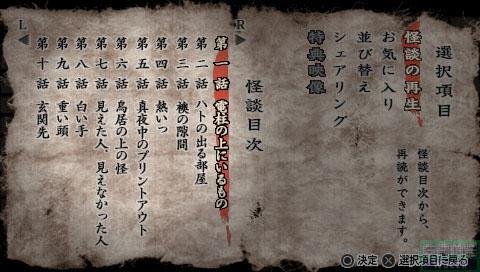 選択項目
怪談の再生
お気に入り
並び替え
シェアリング
特典映像
怪談目次から、
再読ができます。
L
R
怪談目次
第一話 電柱の上にいるもの
第二話 ハトの出る部屋
第三話 襖の隙間
第四話 熱いっ
第五話 真夜中のプリントアウト
第六話 鳥居の上の怪
第七話 見えた人、見えなかった人
第八話 白い手
第九話 重い頭
第十話 玄関先
決定 選択項目に戻る